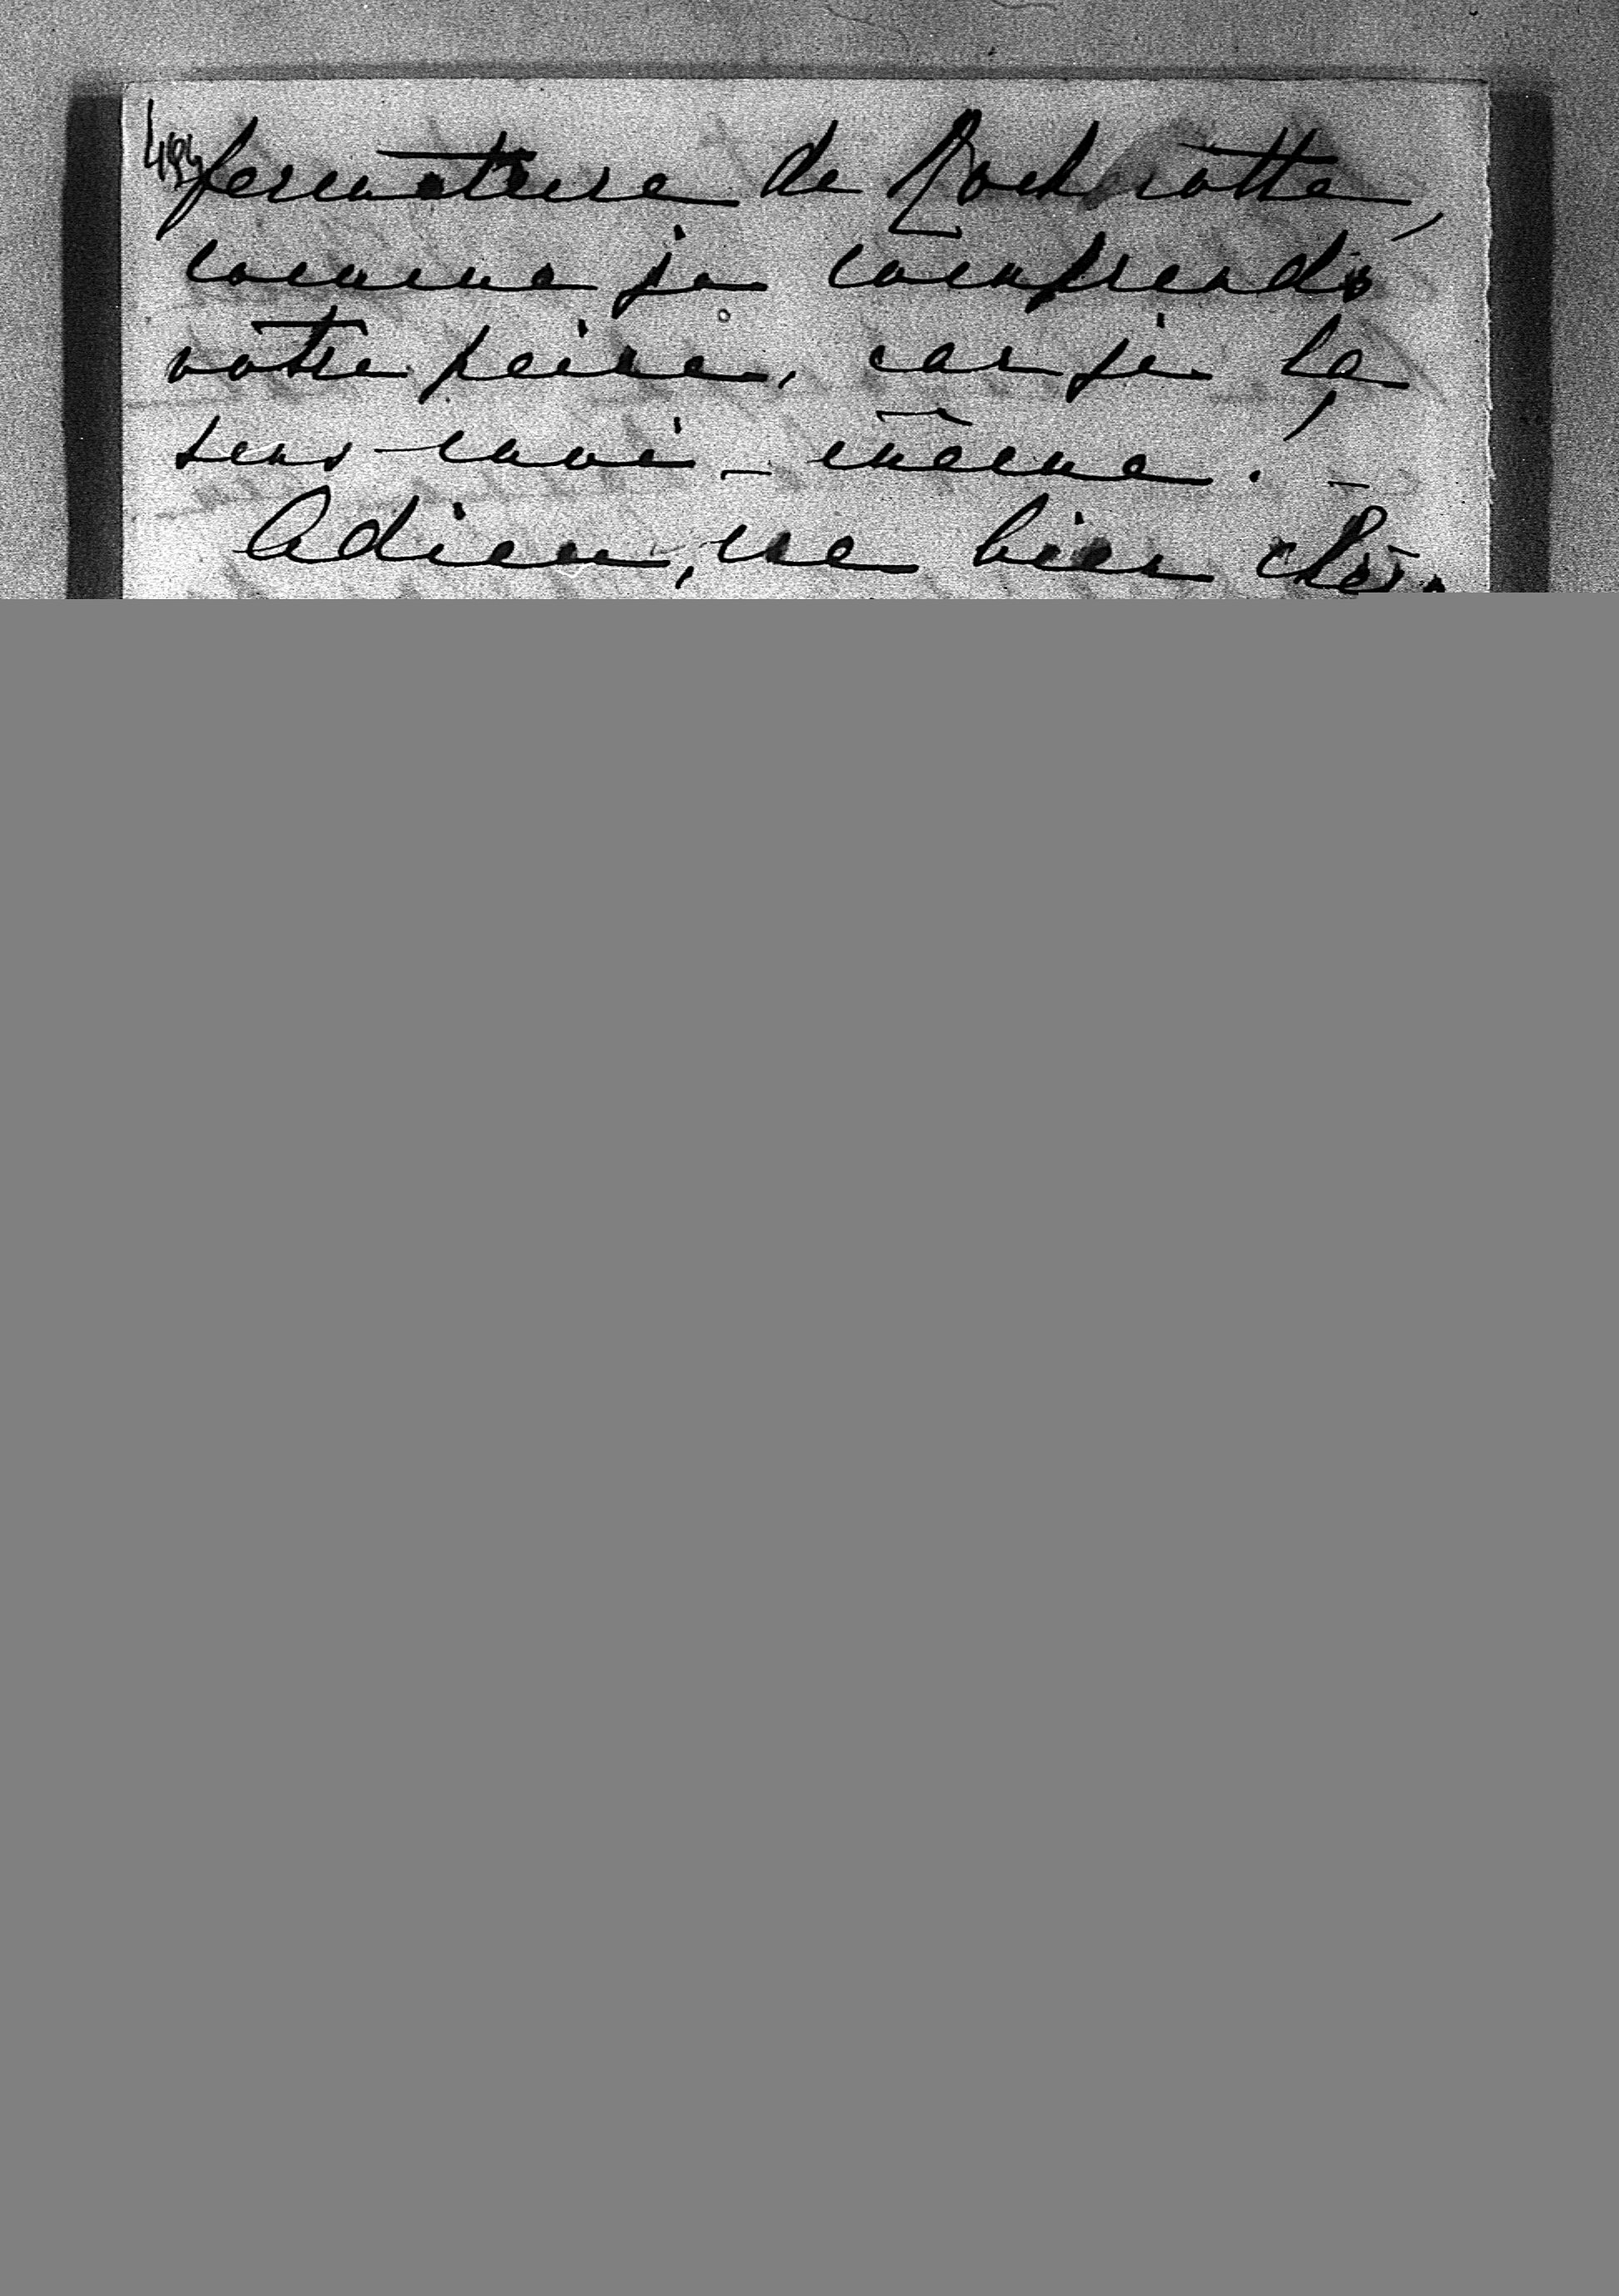 fermeture de Rochecotte,
comme je comprends
votre peine, car je la
sens moi-même ! _
Adieu, ma bien chère